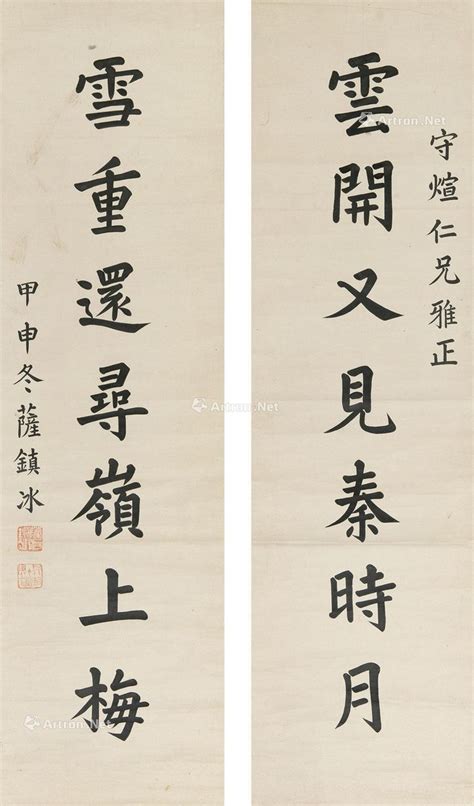 守煊仁兄雅正
雲開又見秦時月
雪重還尋嶺上梅
甲申冬薩鎮冰
Artron.Net
Artron.Net
Artron.Net
Artron.Net
Artron.Net
Artron.Net